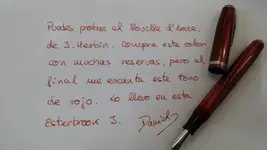 Puedes probar el Rouille d'Ancre,
de J. Herbin. Compré este color
con muchas reservas, pero al
final me encanta este tono
de rojo. Lo llevo en esta
Esterbrook J. Daniel